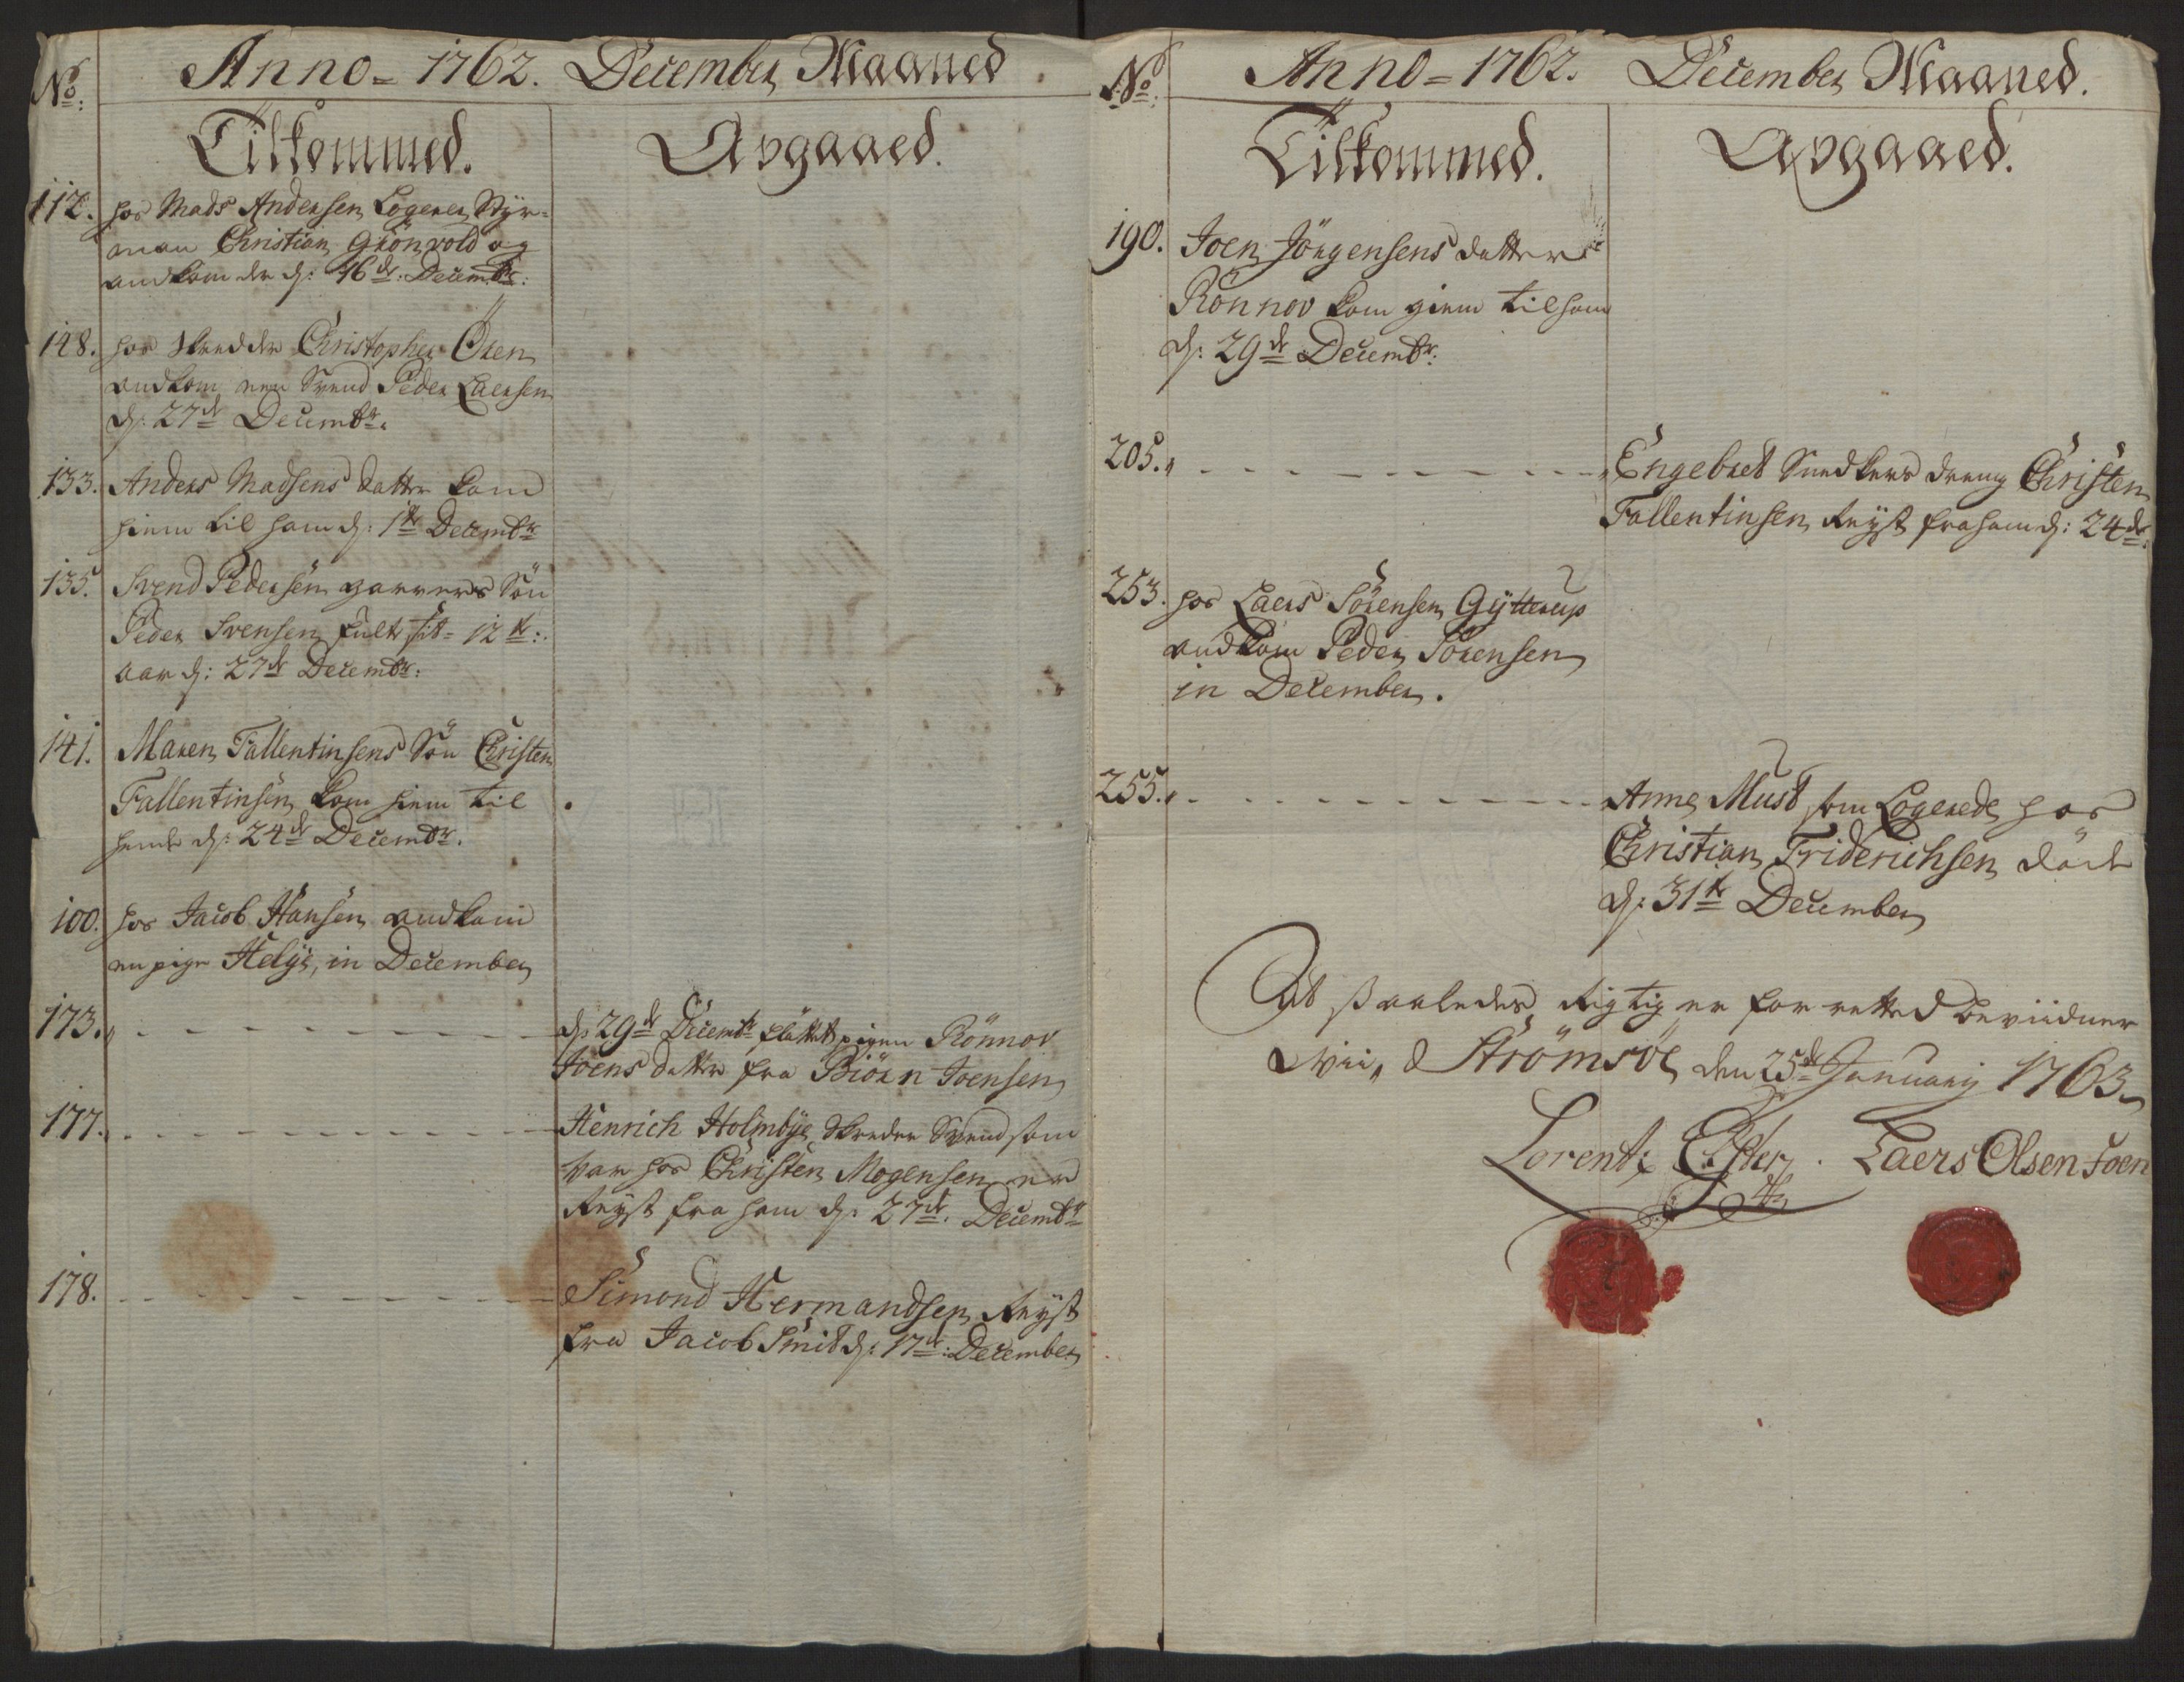 No:
Anno = 1762. December Maaned.
Tilkommed. Avgaaed.
112. hos Mads Andersen Logerer Styr=
man Christian Grönvold og
andkom der d: 16de: Decembr:
148. hos Skredder Christopher Ösen
andkom een Svend Peder Laersen
d: 27de Decembr:
133. Anders Madsens datter kom
hiem til ham d: 1te Decembr
135. Svend Pedersen garvers Sön
Peder Svensen fült sit = 12te:
aar d: 27de Decembr:
141. Maren Fallentinsens Sön Christen
Fallentinsen kom hiem til
hende d: 24de Decembr.
100. hos Jacob Hansen andkom
en pige Helge, in December
173. d: 29de Decembr flöttet pigen Rönnov
Joens datter fra Biörn Joensen
177. Henrich Holmbye Skreder Svend som
var hos Christen Mogensen er
Reyst fra ham d: 27de. Decembr
178. Simond Hermandsen Reyst
fra Jacob Smit d: 17de: December
No:
Anno = 1762. December Maaned.
Tilkommed. Avgaaed.
190. Joen Jörgensens datter
Rönnov kom giem til ham
d: 29de Decembr:
205. Engebret Snedkers dreng Christen
Fallentinsen Reyst fra ham d: 24de:
253. hos Laers Sörensen Gytterup
andkom Peder Sörensen
in December.
255. Anne Must som Logerede hos
Christian Friderichsen döde
d: 31te December
At saaledes Rigtig er forretted beviidner
vii, Strömsöe den 25de January 1763
Lorentz Laers Olsen Joen